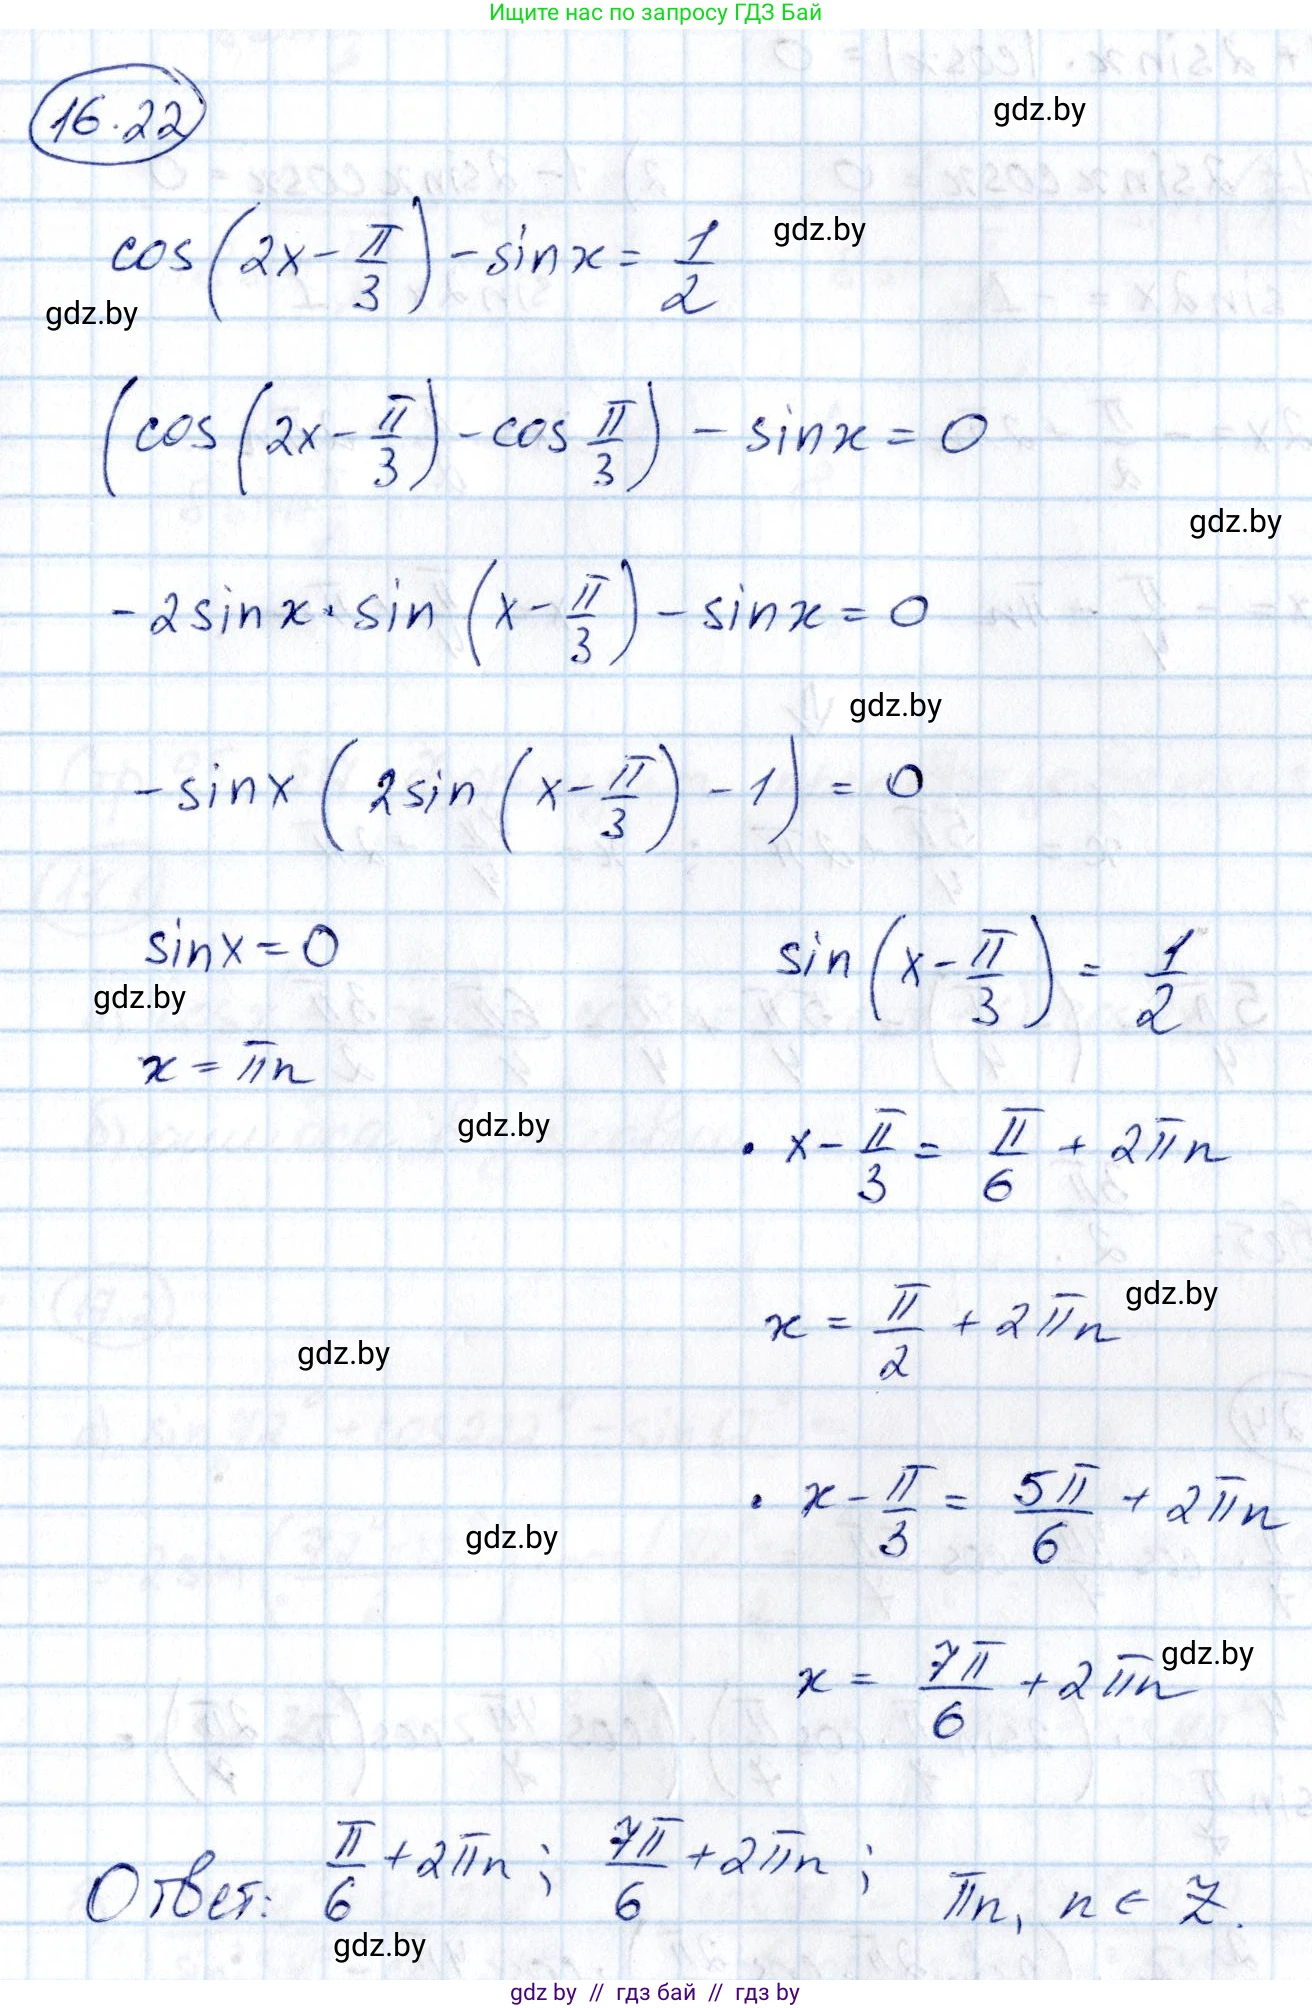 Ищите нас по запросу ГДЗ Бай
16.22
gdz.by
cos(2x - π/3) - sin x = 1/2
gdz.by
gdz.by
(cos(2x - π/3) - cos π/3) - sin x = 0
gdz.by
-2 sin x · sin(x - π/3) - sin x = 0
gdz.by
- sin x (2 sin(x - π/3) - 1) = 0
sin x = 0
sin(x - π/3) = 1/2
gdz.by
x = πn
gdz.by
· x - π/3 = π/6 + 2πn
gdz.by
x = π/2 + 2πn
gdz.by
· x - π/3 = 5π/6 + 2πn
gdz.by
x = 7π/6 + 2πn
gdz.by
Ответ: π/6 + 2πn; 7π/6 + 2πn; πn, n ∈ Z.
gdz.by
gdz.by // гдз бай // гдз by